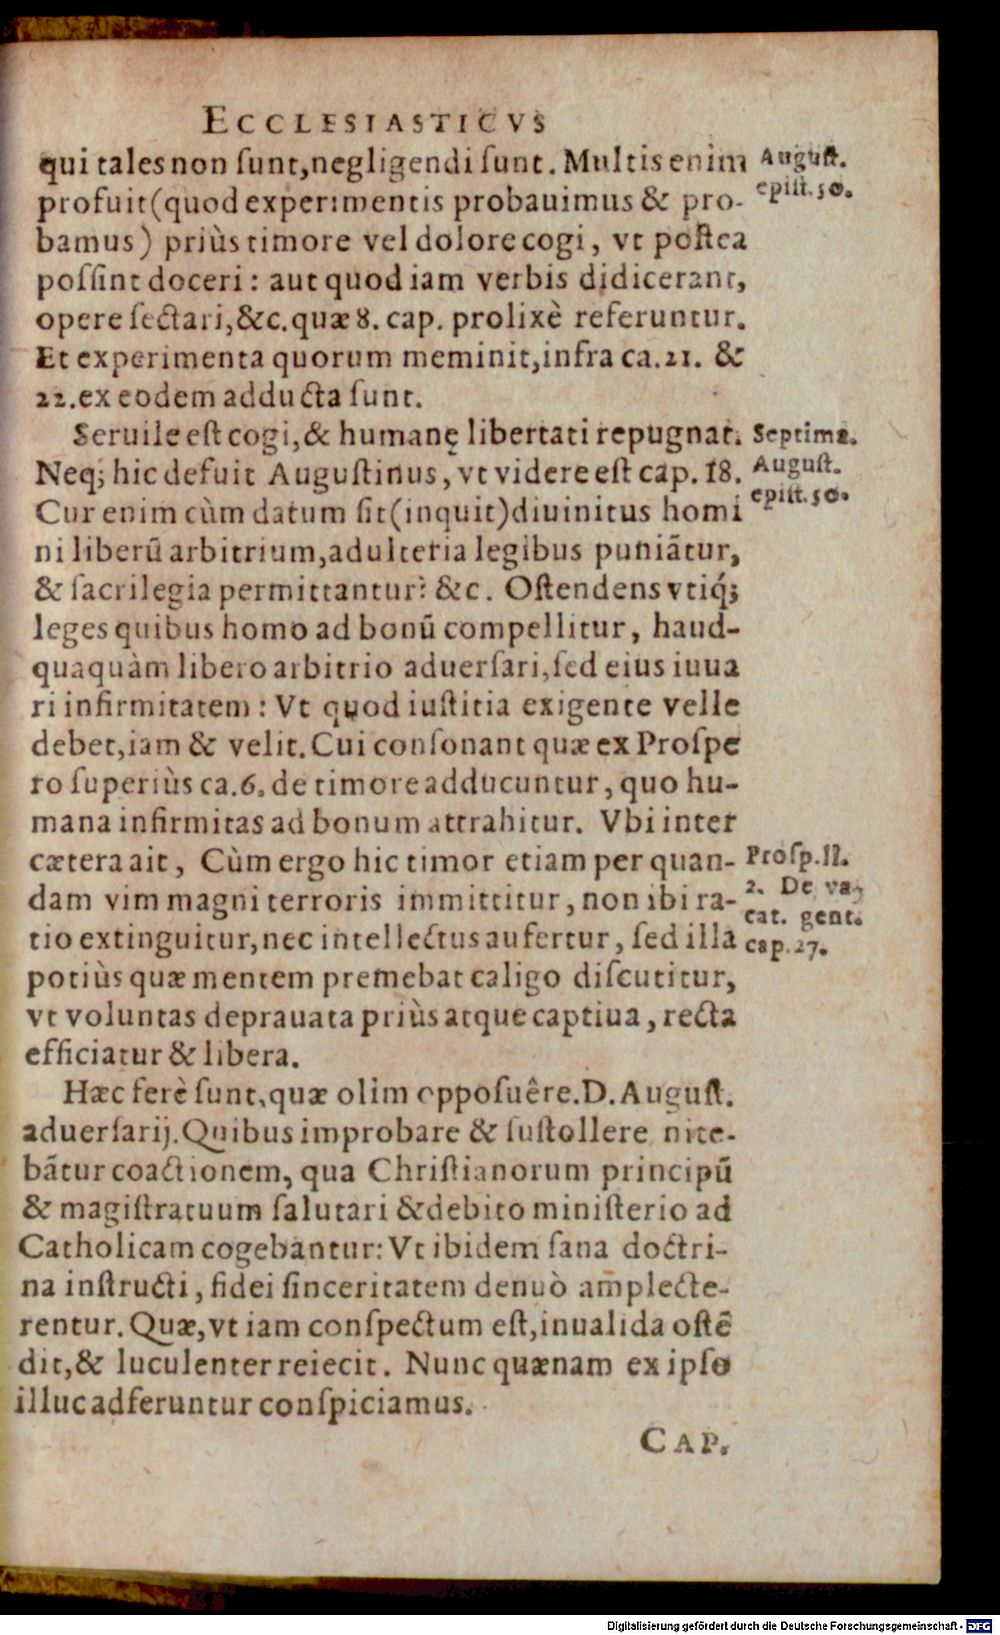 ECCLESIASTICVS
qui tales non ſunt,negligendi ſunt. Multis enim
profuit(quod experimentis probauimus & pro-
bamus) priùs timore vel dolore cogi, vt poſtea
poſſint doceri: aut quod iam verbis didicerant,
opere ſectari,&c.quæ 8. cap. prolixè referuntur.
Et experimenta quorum meminit,infra ca.21. &
22.ex eodem adducta ſunt.
Auguſt.
epiſt.50.
Seruile eſt cogi,& humanę libertati repugnat.
Neq; hic defuit Auguſtinus, vt videre eſt cap. 18.
Cur enim cùm datum ſit(inquit)diuinitus homi
ni liberū arbitrium,adulteria legibus puniātur,
& ſacrilegia permittantur? &c. Oſtendens vtiq́;
leges quibus homo ad bonū compellitur, haud-
quaquàm libero arbitrio aduerſari,ſed eius iuua
ri infirmitatem: Vt quod iuſtitia exigente velle
debet,iam & velit. Cui conſonant quæ ex Proſpe
ro ſuperiùs ca.6. de timore adducuntur, quo hu-
mana infirmitas ad bonum attrahitur. Vbi inter
cætera ait, Cùm ergo hic timor etiam per quan-
dam vim magni terroris immittitur, non ibi ra-
tio extinguitur,nec intellectus aufertur, ſed illa
potiùs quæ mentem premebat caligo diſcutitur,
vt voluntas deprauata priùs atque captiua, recta
efficiatur & libera.
Septima.
Auguſt.
epiſt.50.
Proſp.ll.
2. De va-
cat. gent.
cap.27.
Hæc ferè ſunt,quæ olim oppoſuêre.D.Auguſt.
aduerſarij.Quibus improbare & ſuſtollere nite-
bātur coactionem, qua Chriſtianorum principū
& magiſtratuum ſalutari & debito miniſterio ad
Catholicam cogebantur: Vt ibidem ſana doctri-
na inſtructi, fidei ſinceritatem denuò am̄plecte-
rentur. Quæ,vt iam conſpectum eſt,inualida oſtē
dit,& luculenter reiecit. Nunc quænam ex ipſo
illuc adferuntur conſpiciamus.
CAP.
Digitalisierung gefördert durch die Deutsche Forschungsgemeinschaft - DFG